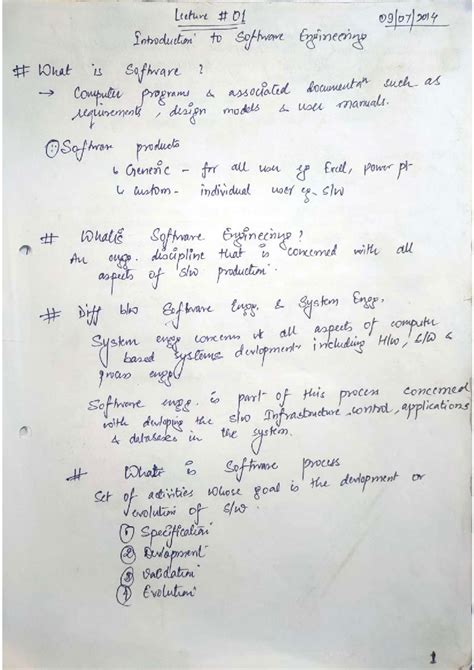 Lecture # 01
09/07/2014
Introduction to Software Engineering
# What is Software ?
→ Computer programs & associated documentn such as
requirements, design models & user manuals.
Softwar products
↳ Generic - for all user eg Excel, power pt
↳ custom - individual user eg. S/w
# What is Software Engineering?
An engg. discipline that is concerned with all
aspects of s/w production.
# Diff b/w Software Engg. & System Engg.
System engg concerns all aspects of computer
based systems devlopment including H/w, S/w &
process engg
Software engg. is part of this process concerned
with devloping the s/w Infrastructure, control, applications
& databases in the system.
# What is Software process
Set of activities whose goal is the devlopment or
evolution of S/w.
① Specification
② Devlopment
③ Validation
④ Evolution
1